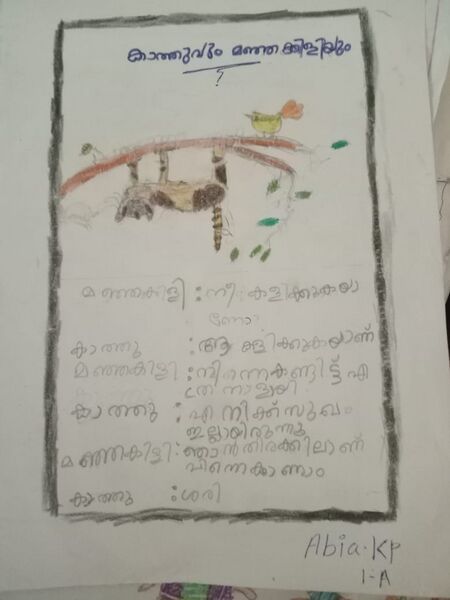 കാത്തുവും മഞ്ഞക്കിളിയും
?
മഞ്ഞകിളി : നീ കളിക്കുകയാ
ണോ?
കാത്തു : ആ കളിക്കുകയാണ്
മഞ്ഞകിളി : നിന്നെകണ്ടിട്ട് എ
ത്ര നാളായി
കാത്തു : എനിക്ക് സുഖം
ഇല്ലായിരുന്നു
മഞ്ഞകിളി : ഞാൻതിരക്കിലാണ്
പിന്നെകാണാം
കാത്തു : ശരി
Abia.KP
1-A